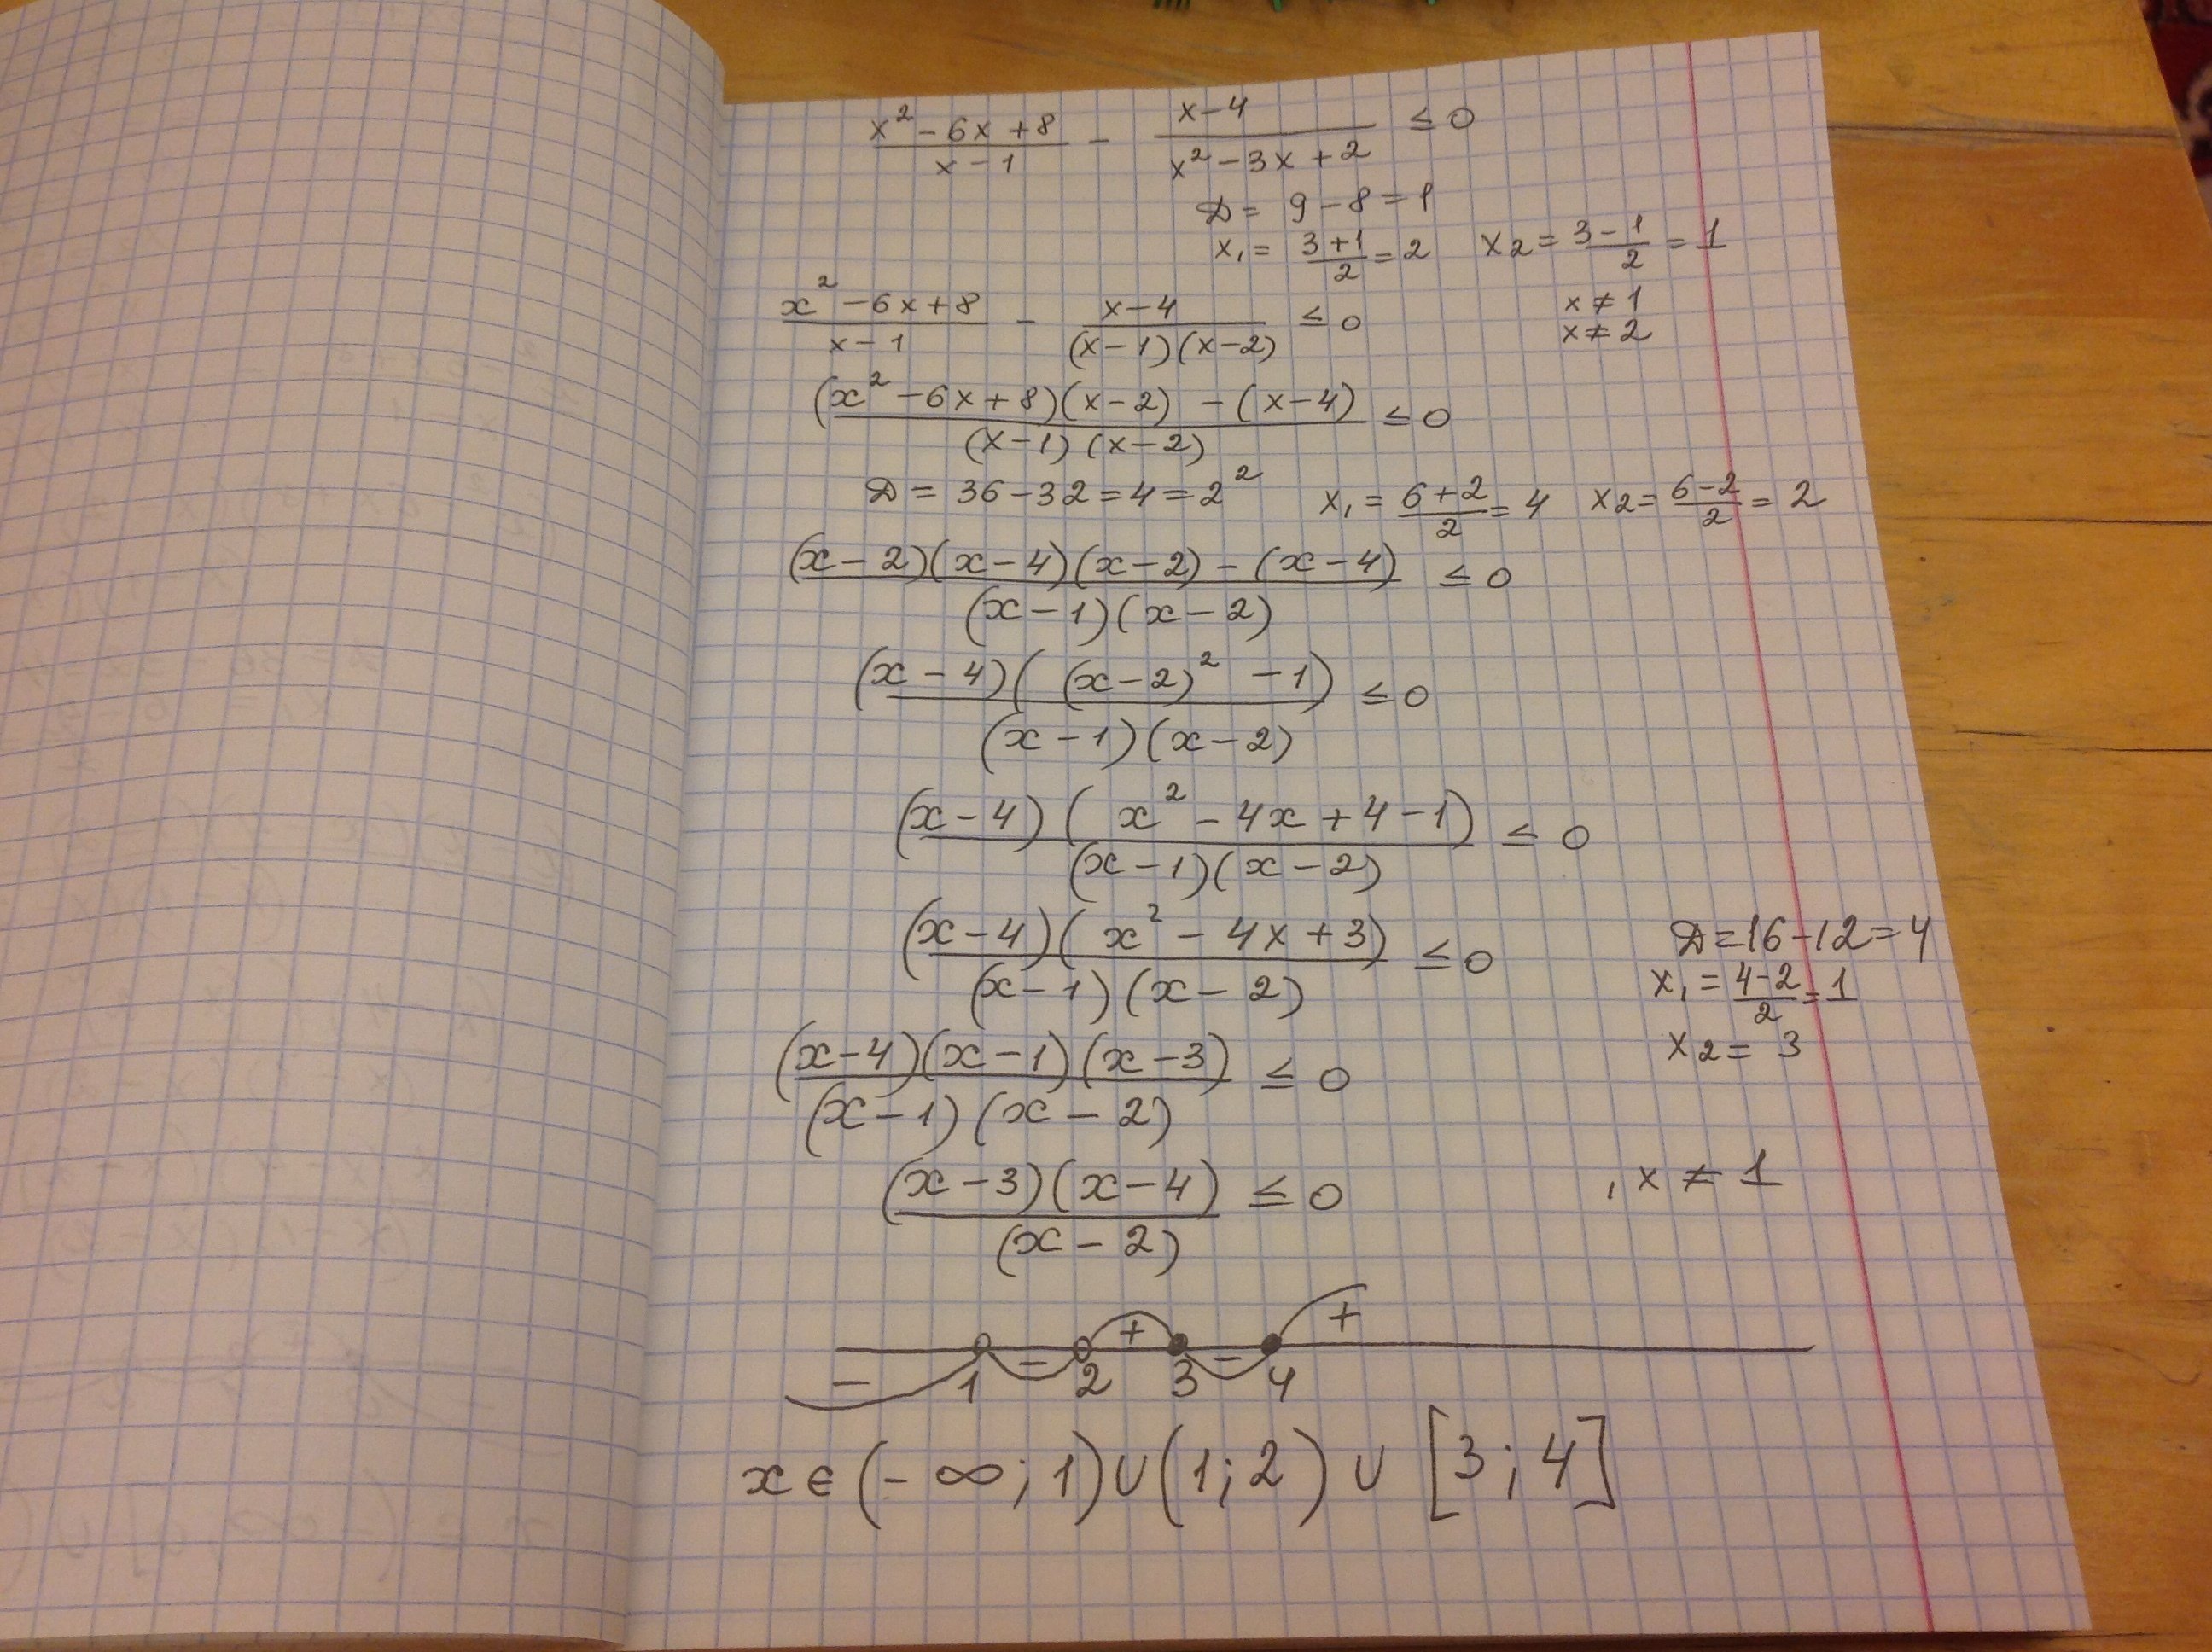 (x² − 6x + 8)/(x − 1) − (x − 4)/(x² − 3x + 2) ≤ 0
D = 9 − 8 = 1
x₁ = (3 + 1)/2 = 2   x₂ = (3 − 1)/2 = 1
(x² − 6x + 8)/(x − 1) − (x − 4)/((x − 1)(x − 2)) ≤ 0
x ≠ 1
x ≠ 2
((x² − 6x + 8)(x − 2) − (x − 4))/((x − 1)(x − 2)) ≤ 0
D = 36 − 32 = 4 = 2²   x₁ = (6 + 2)/2 = 4   x₂ = (6 − 2)/2 = 2
((x − 2)(x − 4)(x − 2) − (x − 4))/((x − 1)(x − 2)) ≤ 0
((x − 4)((x − 2)² − 1))/((x − 1)(x − 2)) ≤ 0
((x − 4)(x² − 4x + 4 − 1))/((x − 1)(x − 2)) ≤ 0
((x − 4)(x² − 4x + 3))/((x − 1)(x − 2)) ≤ 0
D = 16 − 12 = 4
x₁ = (4 − 2)/2 = 1
x₂ = 3
((x − 4)(x − 1)(x − 3))/((x − 1)(x − 2)) ≤ 0
((x − 3)(x − 4))/(x − 2) ≤ 0   , x ≠ 1
− − + − +
1 2 3 4
x ∈ (−∞; 1) ∪ (1; 2) ∪ [3; 4]